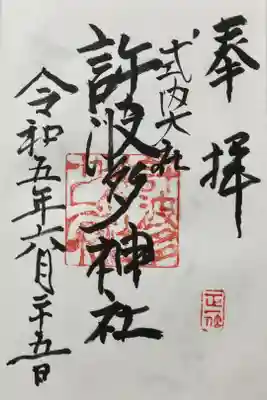 奉拝
式内大社
許波多神社
令和五年六月二十五日
正一位